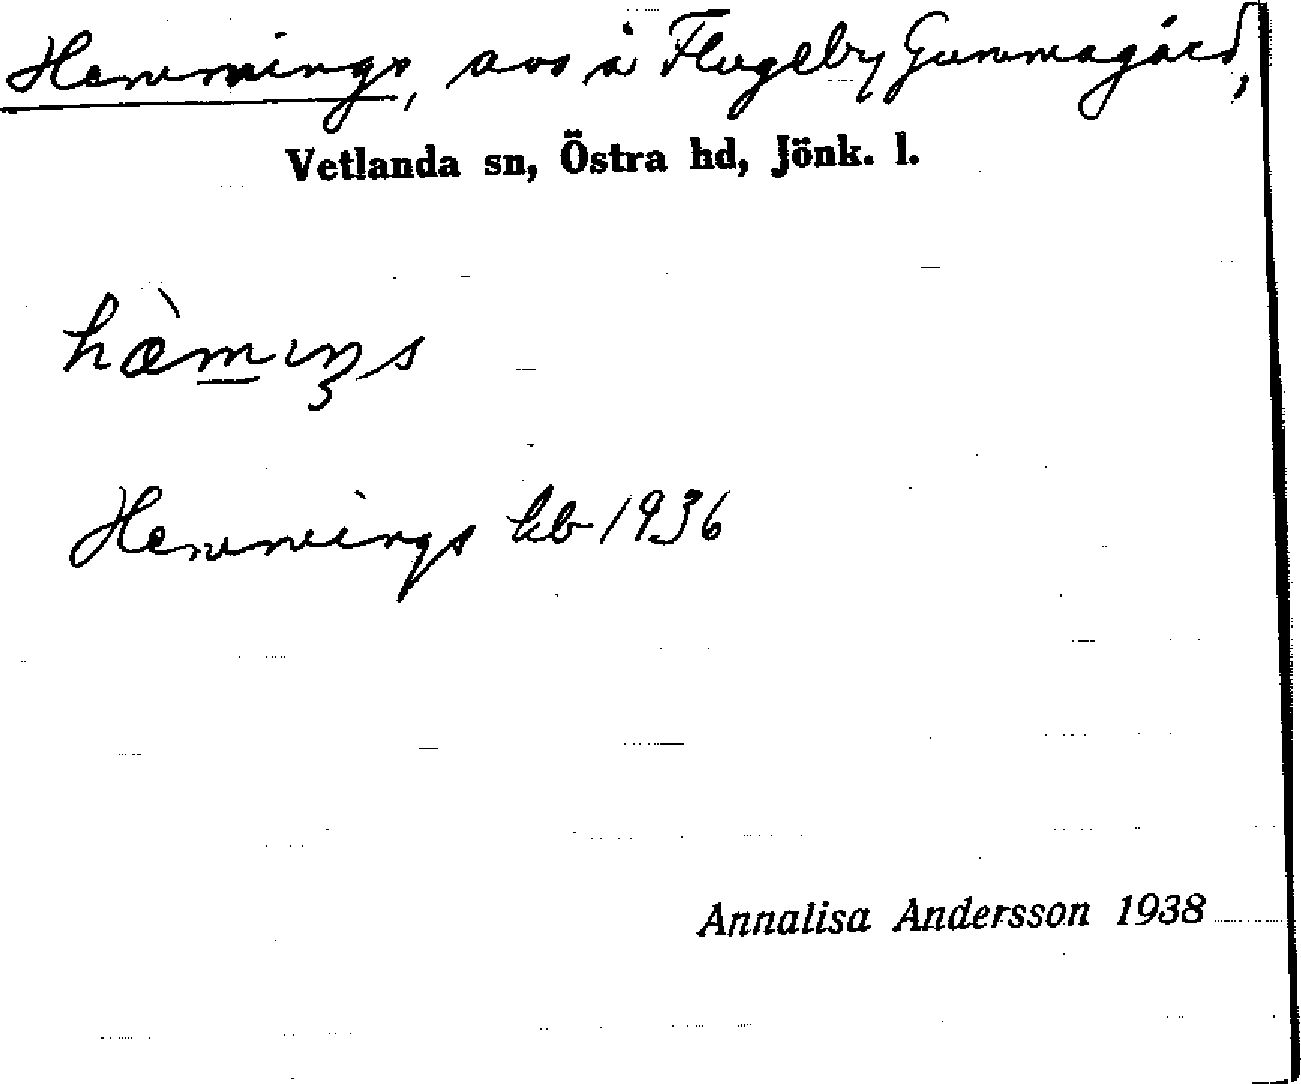 Hemmings, avs å Flugeby Gummagård,
Vetlanda sn, Östra hd, Jönk. l.
hæ̀m̲ıŋs
Hemmings kb 1936
Annalisa Andersson 1938